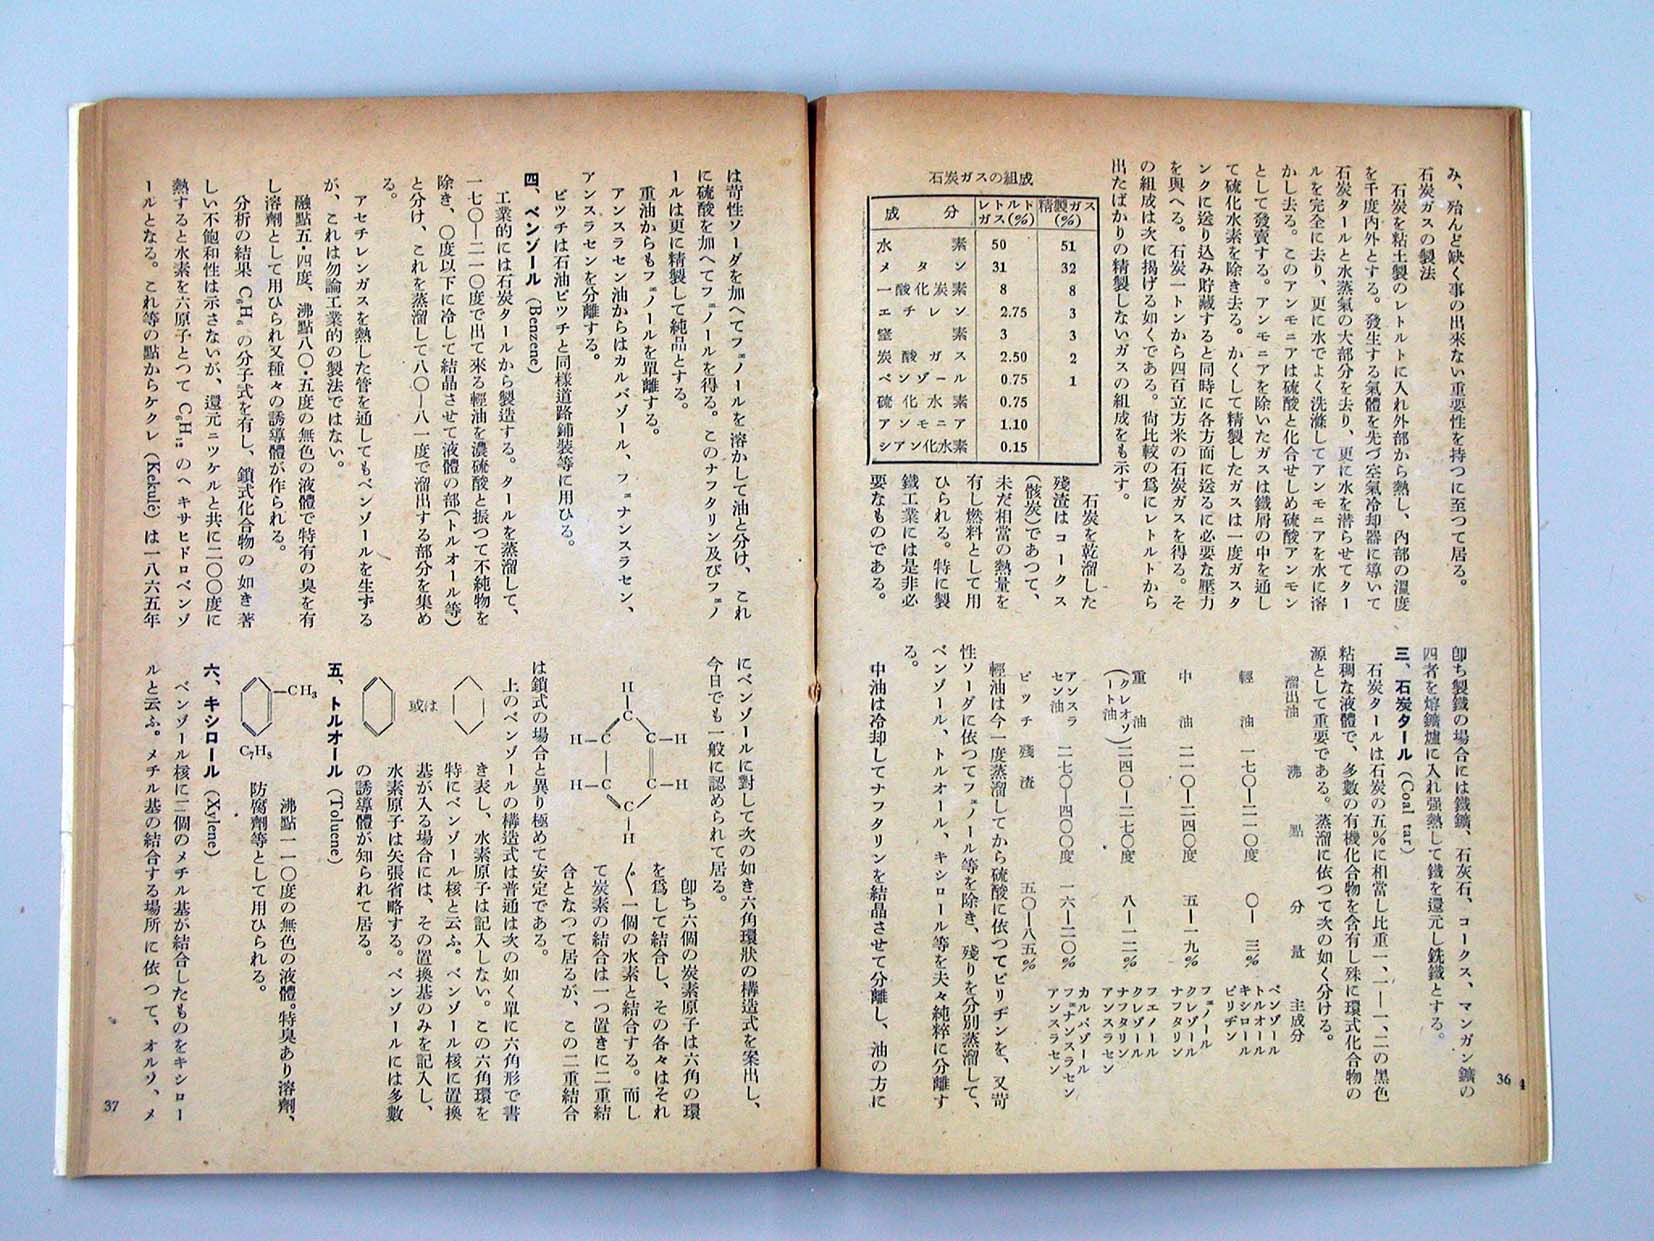 み、殆んど缺く事の出來ない重要性を持つに至つて居る。
石炭ガスの製法
石炭を粘土製のレトルトに入れ外部から熱し、内部の溫度
を千度內外とする。發生する氣體を先づ空氣冷却器に導いて
石炭タールと水蒸氣の大部分を去り、更に水を潜らせてター
ルを完全に去り、更に水でよく洗滌してアンモニアを水に溶
かし去る。このアンモニアは硫酸と化合せしめ硫酸アンモン
として發賣する。アンモニアを除いたガスは鐵屑の中を通し
て硫化水素を除き去る。かくして精製したガスは一度ガスタ
ンクに送り込み貯藏すると同時に各方面に送るに必要な壓力
を與へる。石炭一トンから四百立方米の石炭ガスを得る。そ
の組成は次に揭げる如くである。尙比較の爲にレトルトから
出たばかりの精製しないガスの組成をも示す。
石炭ガスの組成
成分 レトルトガス(%) 精製ガス(%)
水素 50 51
メタン 31 32
一酸化炭素 8 8
エチレン 2.75 3
窒素 3 3
炭酸ガス 2.50 2
ベンゾール 0.75 1
硫化水素 0.75
アンモニア 1.10
シアン化水素 0.15
石炭を乾溜した
殘渣はコークス
(骸炭)であつて、
未だ相當の熱量を
有し燃料として用
ひられる。特に製
鐵工業には是非必
要なものである。
卽ち製鐵の場合には鐵鑛、石灰石、コークス、マンガン鑛の
四者を熔鑛爐に入れ强熱して鐵を還元し銑鐵とする。
三、石炭タール (Coal tar)
石炭タールは石炭の五%に相當し比重一、一―一、二の黑色
粘稠な液體で、多數の有機化合物を含有し殊に環式化合物の
源として重要である。蒸溜に依つて次の如く分ける。
溜出油 沸點 分量 主成分
輕油 一七〇―二一〇度 〇―三% ベンゾール トルオール キシロール ピリヂン
中油 二一〇―二四〇度 五―一九% フェノール クレゾール ナフタリン
重油(クレオソート油) 二四〇―二七〇度 八―一二% フエノール クレゾール ナフタリン アンスラセン
アンスラセン油 二七〇―四〇〇度 一六―二〇% カルバゾール フェナンスラセン アンスラセン
ピッチ殘渣 五〇―八五%
輕油は今一度蒸溜してから硫酸に依つてピリヂンを、又苛
性ソーダに依つてフェノール等を除き、殘りを分別蒸溜して、
ベンゾール、トルオール、キシロール等を夫々純粹に分離す
る。
中油は冷却してナフタリンを結晶させて分離し、油の方に
36
4
は苛性ソーダを加へてフェノールを溶かして油と分け、これ
に硫酸を加へてフェノールを得る。このナフタリン及びフェノ
ールは更に精製して純品とする。
重油からもフェノールを單離する。
アンスラセン油からはカルバゾール、フェナンスラセン、
アンスラセンを分離する。
ピッチは石油ピッチと同樣道路鋪裝等に用ひる。
四、ベンゾール (Benzene)
工業的には石炭タールから製造する。タールを蒸溜して、
一七〇―二一〇度で出て來る輕油を濃硫酸と振つて不純物を
除き、〇度以下に冷して結晶させて液體の部(トルオール等)
と分け、これを蒸溜して八〇―八一度で溜出する部分を集め
る。
アセチレンガスを熱した管を通してもベンゾールを生ずる
が、これは勿論工業的の製法ではない。
融點五・四度、沸點八〇・五度の無色の液體で特有の臭を有
し溶劑として用ひられ又種々の誘導體が作られる。
分析の結果 C₆H₆ の分子式を有し、鎖式化合物の如き著
しい不飽和性は示さないが、還元ニツケルと共に二〇〇度に
熱すると水素を六原子とつて C₆H₁₂ のヘキサヒドロベンゾ
ールとなる。これ等の點からケクレ (Kekulé) は一八六五年
にベンゾールに對して次の如き六角環狀の構造式を案出し、
今日でも一般に認められて居る。
H
C
H―C C―H
H―C C―H
C
H
卽ち六個の炭素原子は六角の環
を爲して結合し、その各々はそれ
ぐ〜一個の水素と結合する。而し
て炭素の結合は一つ置きに二重結
合となつて居るが、この二重結合
は鎖式の場合と異り極めて安定である。
上のベンゾールの構造式は普通は次の如く單に六角形で書
き表し、水素原子は記入しない。この六角環を
特にベンゾール核と云ふ。ベンゾール核に置換
基が入る場合には、その置換基のみを記入し、
水素原子は矢張省略する。ベンゾールには多數
の誘導體が知られて居る。
或は
五、トルオール (Toluene)
―CH₃
C₇H₈
沸點一一〇度の無色の液體。特臭あり溶劑、
防腐劑等として用ひられる。
六、キシロール (Xylene)
ベンゾール核に二個のメチル基が結合したものをキシロー
ルと云ふ。メチル基の結合する場所に依つて、オルソ、メ
37